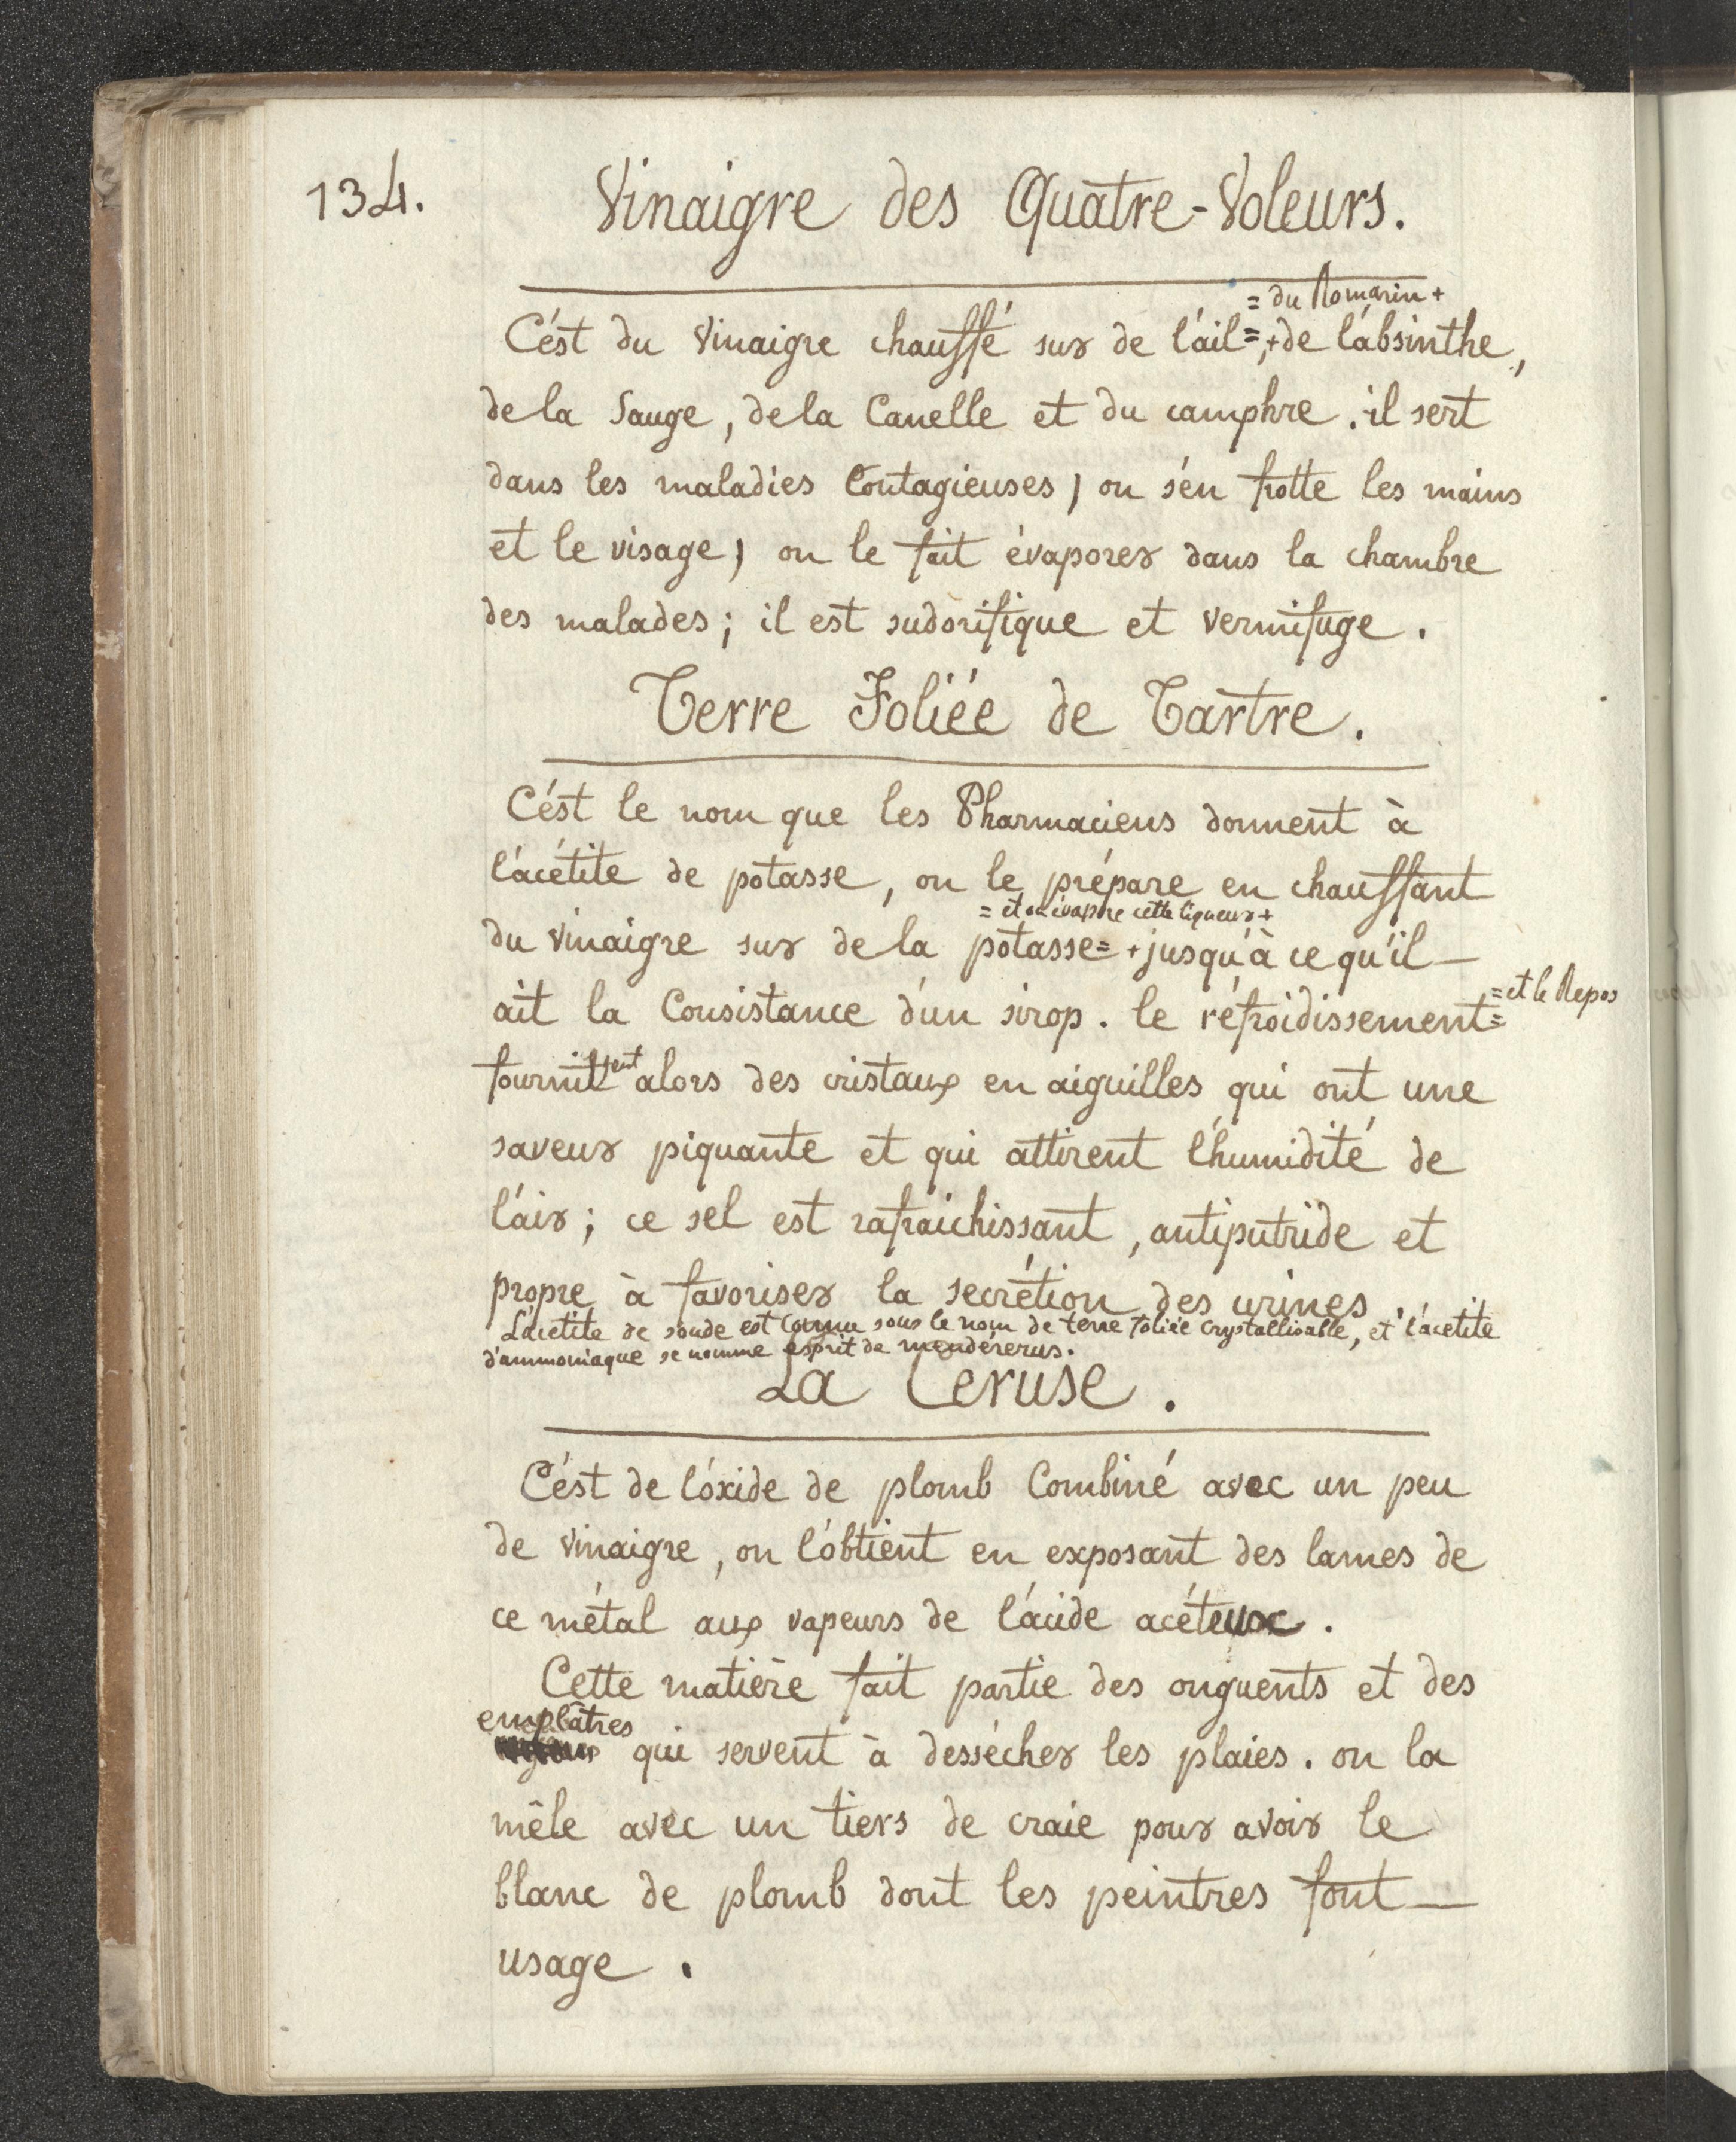 134.
Vinaigre des Quatre-Voleurs.
= du Romarin +
C'ést du Vinaigre chauffé sur de l'áil=,+de l'ábsinthe,
de la Sauge, de la Canelle et du camphre. il sert
dans les maladies Contagieuses; on s'én frotte les mains
et le visage; on le fait évaporer dans la chambre
des malades; il est sudorifique et vermifuge.
Terre Foliée de Tartre.
C'ést le nom que les Pharmaciens donnent à
l'ácétite de potasse, on le prépare en chauffant
= et on évapore cette liqueur +
du vinaigre sur de la potasse= + jusqu'à ce qu'il —
= et le Repos
ait la Consistance d'ún sirop. le réfroidissement=
fournittent alors des cristaux en aiguilles qui ont une
saveur piquante et qui attirent l'húmidité de
l'áir; ce sel est rafraichissant, antiputride et
propre à favoriser la secrétion des urines.
L'ácétite de soude est Connu sous le nom de terre foliée Crystallisable, et l'ácétite
d'ammoniaque se nomme esprit de mendérérus.
La Ceruse.
C'ést de l'óxide de plomb Combiné avec un peu
de vinaigre, on l'óbtient en exposant des lames de
ce métal aux vapeurs de l'ácide acéteux.
Cette matière fait partie des onguents et des
emplâtres
qui servent à dessécher les plaies. on la
mêle avec un tiers de craie pour avoir le
blanc de plomb dont les peintres font —
usage.